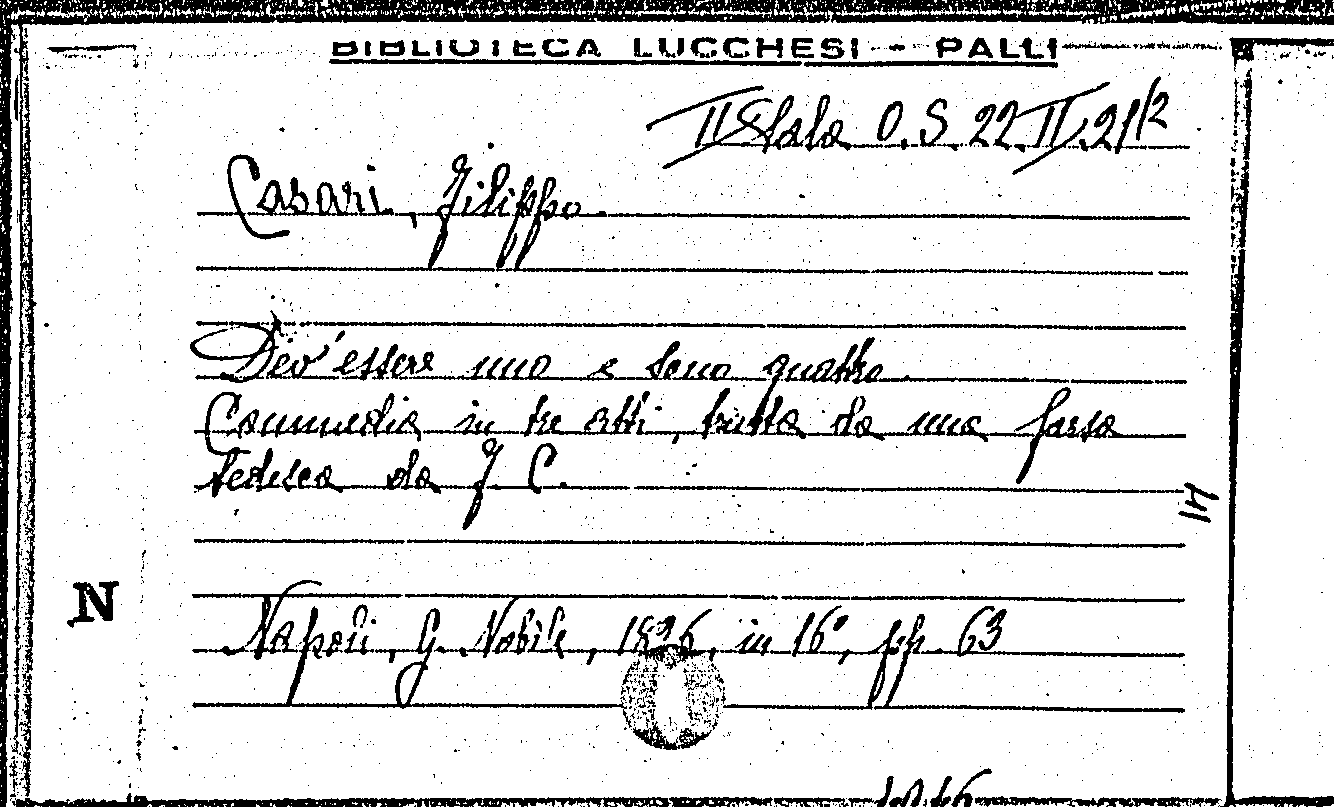 BIBLIOTECA LUCCHESI - PALLI
II Sala O.S. 22.II.21/2
Casari, Filippo.
Dev'essere uno e sono quattro.
Commedia in tre atti, tratta da una farsa
tedesca da F. C.
41
N
Napoli, G. Nobile, 1826, in 16°, pp. 63